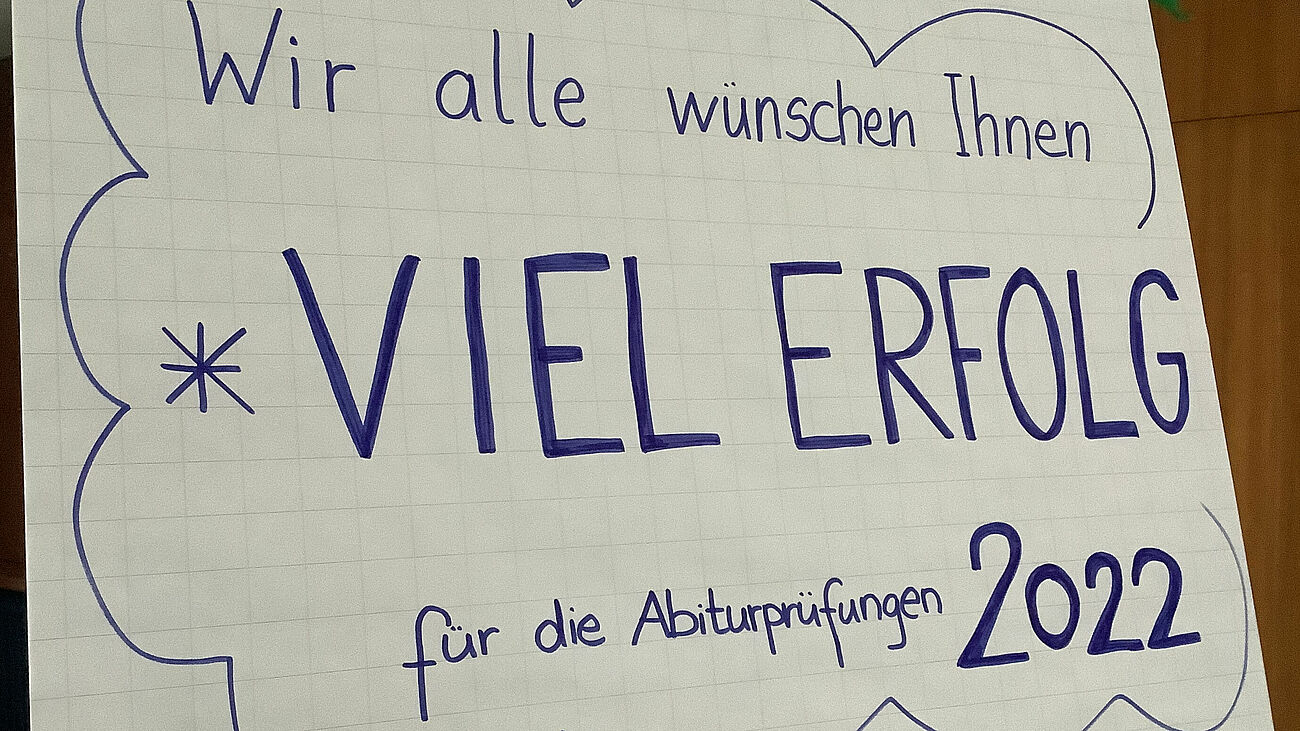 Wir alle wünschen Ihnen
* VIEL ERFOLG
für die Abiturprüfungen 2022